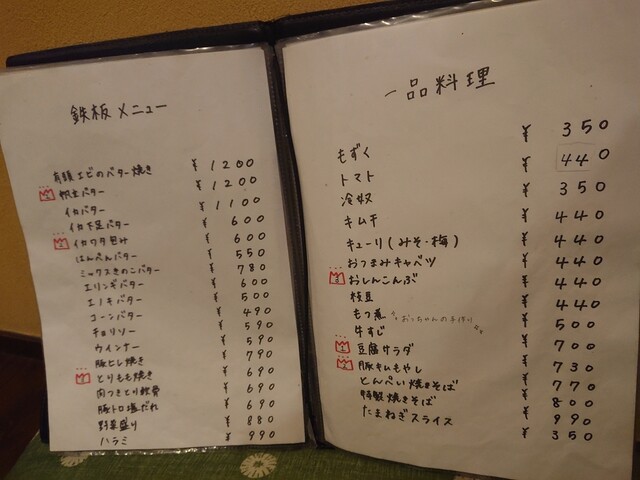 鉄板メニュー
有頭エビのバター焼き ¥1200
2 帆立バター ¥1200
イカバター ¥1100
イカ下足バター ¥600
3 イカワタ包み ¥600
はんぺんバター ¥550
ミックスきのこバター ¥780
エリンギバター ¥600
エノキバター ¥500
コーンバター ¥490
チョリソー ¥590
ウインナー ¥590
豚ヒレ焼き ¥790
1 とりもも焼き ¥690
肉つきとり軟骨 ¥690
豚トロ塩だれ ¥690
野菜盛り ¥880
ハラミ ¥990
一品料理
もずく ¥350
トマト ¥440
冷奴 ¥350
キムチ ¥440
キューリ(みそ・梅) ¥440
おつまみキャベツ ¥440
3 おしんこんぶ ¥440
枝豆 ¥440
もつ煮 おっちゃんの手作り ¥500
牛すじ ¥700
1 豆腐サラダ ¥730
2 豚キムもやし ¥770
とんぺい焼きそば ¥800
特製焼きそば ¥990
たまねぎスライス ¥350